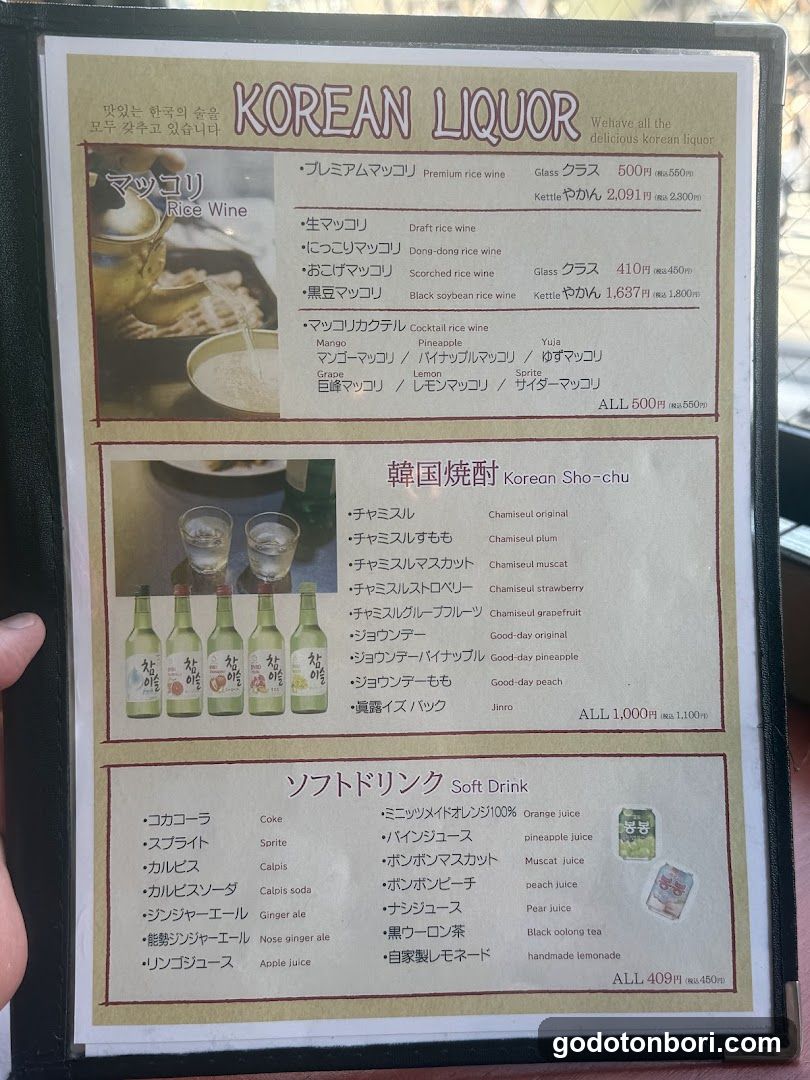 맛있는 한국의 술을
모두 갖추고 있습니다
KOREAN LIQUOR
Wehave all the
delicious korean liquor
マッコリ
Rice Wine
・プレミアムマッコリ Premium rice wine Glass クラス 500円 (税込550円)
Kettle やかん 2,091円 (税込2,300円)
・生マッコリ Draft rice wine
・にっこりマッコリ Dong-dong rice wine
・おこげマッコリ Scorched rice wine Glass クラス 410円 (税込450円)
・黒豆マッコリ Black soybean rice wine Kettle やかん 1,637円 (税込1,800円)
・マッコリカクテル Cocktail rice wine
Mango Pineapple Yuja
マンゴーマッコリ / パイナップルマッコリ / ゆずマッコリ
Grape Lemon Sprite
巨峰マッコリ / レモンマッコリ / サイダーマッコリ
ALL 500円 (税込550円)
韓国焼酎 Korean Sho-chu
・チャミスル Chamiseul original
・チャミスルすもも Chamiseul plum
・チャミスルマスカット Chamiseul muscat
・チャミスルストロベリー Chamiseul strawberry
・チャミスルグループフルーツ Chamiseul grapefruit
・ジョウンデー Good-day original
・ジョウンデーパイナップル Good-day pineapple
・ジョウンデーもも Good-day peach
・眞露イズ バック Jinro
ALL 1,000円 (税込1,100円)
참이슬
참이슬
참이슬
참이슬
참이슬
ソフトドリンク Soft Drink
・コカコーラ Coke
・スプライト Sprite
・カルピス Calpis
・カルピスソーダ Calpis soda
・ジンジャーエール Ginger ale
・能勢ジンジャーエール Nose ginger ale
・リンゴジュース Apple juice
・ミニッツメイドオレンジ100% Orange juice
・パインジュース pineapple juice
・ボンボンマスカット Muscat juice
・ボンボンピーチ peach juice
・ナシジュース Pear juice
・黒ウーロン茶 Black oolong tea
・自家製レモネード handmade lemonade
봉봉
봉봉
ALL 409円 (税込450円)
godotonbori.com